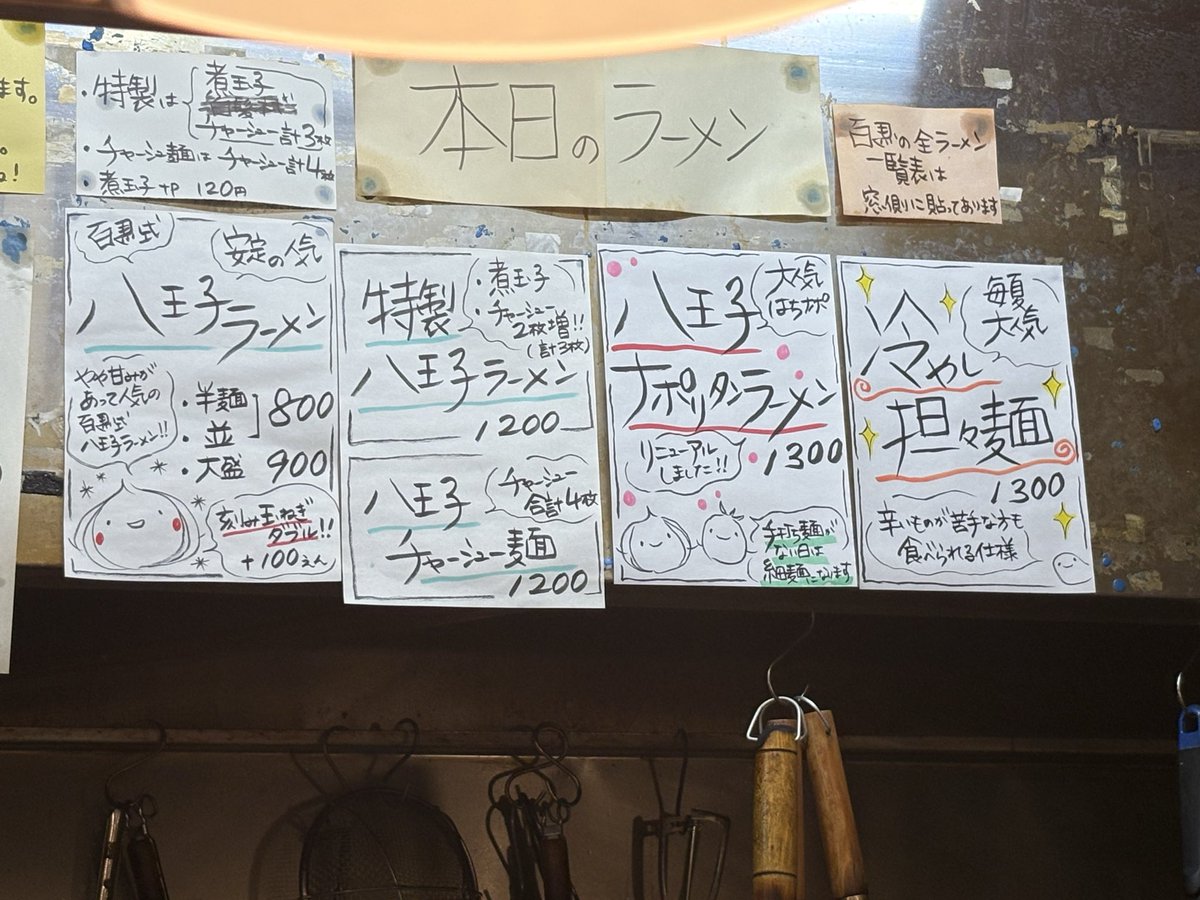 ます。
・特製は
煮玉子
チャーシュー計3枚
・チャーシュー麺は チャーシュー計4枚
・煮玉子 +P 120円
本日のラーメン
の全ラーメン
一覧表は
窓側に貼ってあります
安定の人気
八王子ラーメン
やや甘みが
あって人気の
八王子ラーメン!!
・半麺
・並
800
・大盛 900
刻み玉ねぎ
ダブル!!
+100えん
特製
・煮玉子
・チャーシュー
2枚増!!
(計3枚)
八王子ラーメン
1200
八王子
チャーシュー
合計4枚
チャーシュー麺
1200
八王子
大人気
はちナポ
ナポリタンラーメン
リニューアル
しました!!
1300
手打ち麺が
ない日は
細麺になります
毎夏
大人気
冷やし
担々麺
1300
辛いものが苦手な方も
食べられる仕様